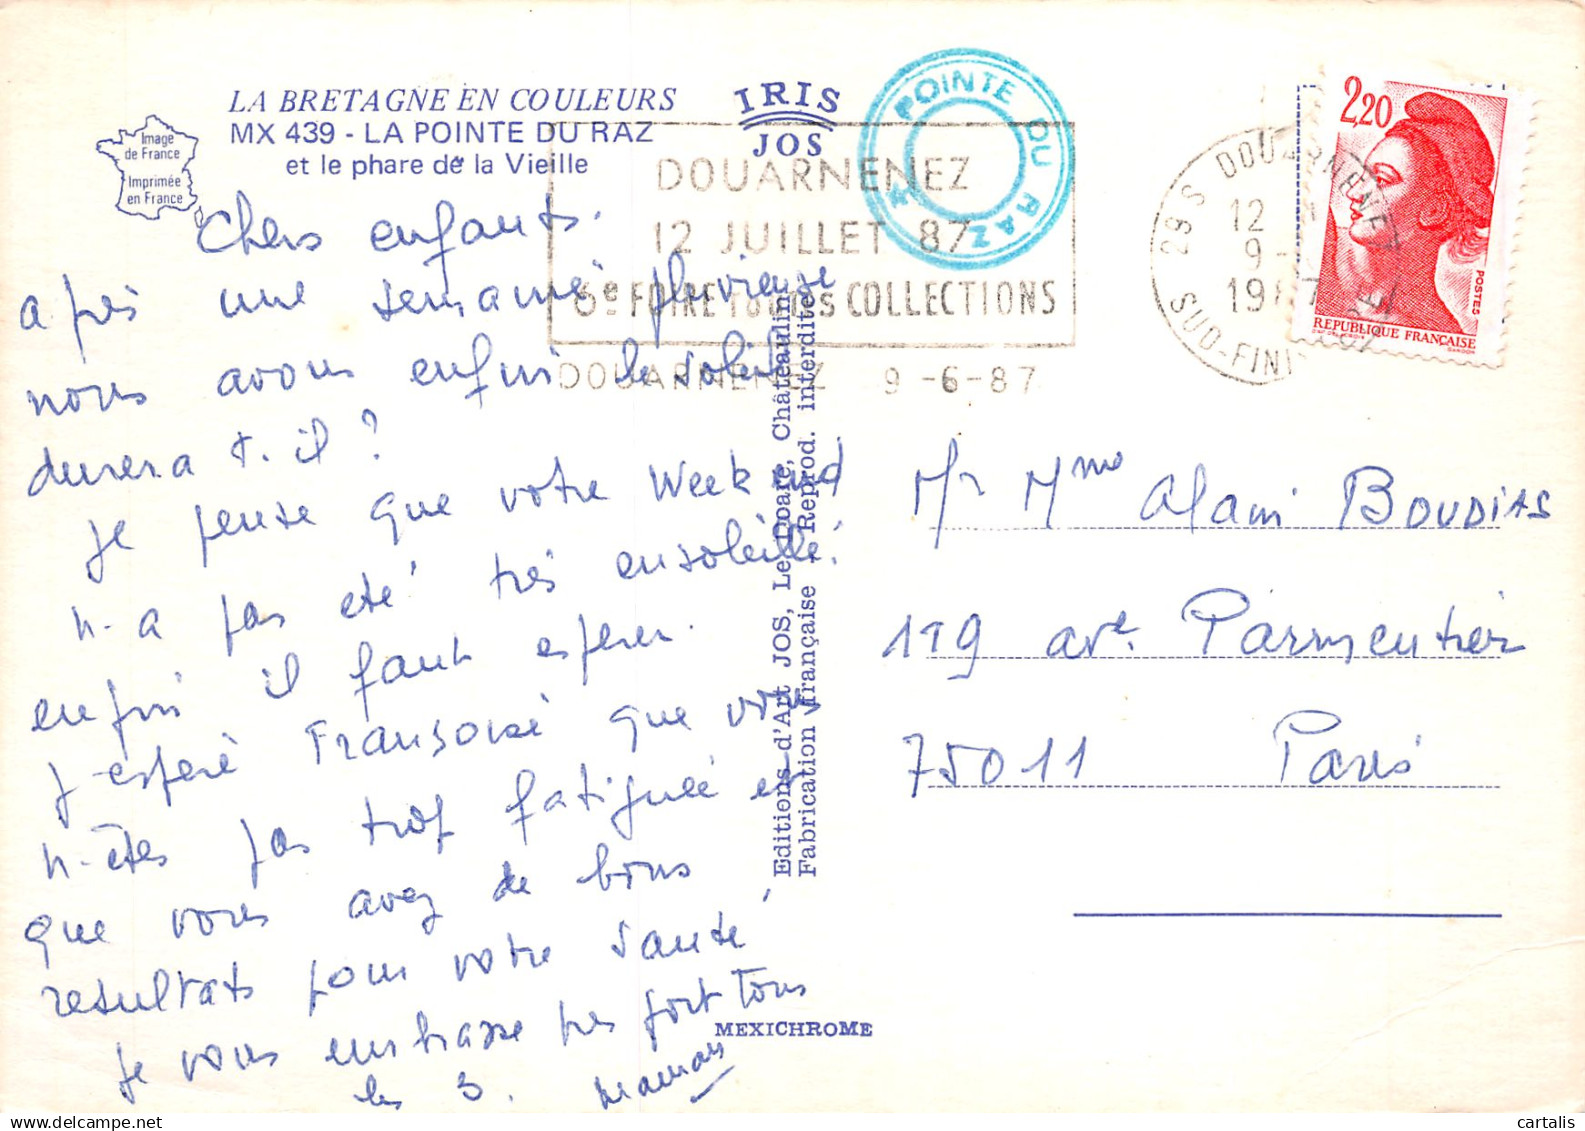 LA BRETAGNE EN COULEURS
MX 439 - LA POINTE DU RAZ
et le phare de la Vieille
Image
de France
Imprimée
en France
IRIS
JOS
POINTE DU RAZ
DOUARNENEZ
12 JUILLET 87
6e FOIRE TOUTES COLLECTIONS
DOUARNENEZ 9-6-87
29 S DOUARNENEZ
12
9-
1987
SUD-FINI
2,20
POSTES
REPUBLIQUE FRANÇAISE
GANDON
Chers enfants.
après une semaine pluvieuse
nous avons enfin le soleil
durera t. il ?
je pense que votre Week end
n-a pas été très ensoleillé!
enfin il faut esperer.
j-espère Fransoise que vous
n-êtes pas trop fatiguée et
que vous avez de bons
resultats pour votre santé
je vous embrasse très fort Tous
les 3. Maman
Mr Mme Alain BOUDIAS
119 ave Parmentier
75011 Paris
Editions d'Art JOS, Le Doaré, Châteaulin
Fabrication française - Reprod. interdite
MEXICHROME
cartalis